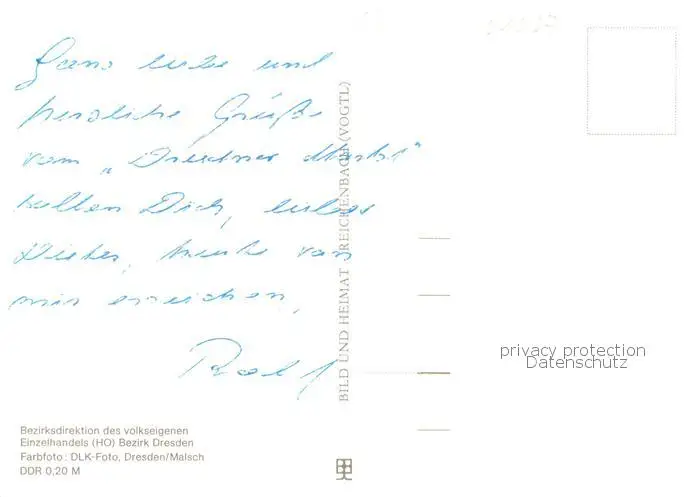 Ganz liebe und
herzliche Grüße
vom „Dresdner Markt“
sollen Dich, liebes
heute von
mir erreichen,
Rolf
BILD UND HEIMAT REICHENBACH (VOGTL)
privacy protection
Datenschutz
Bezirksdirektion des volkseigenen
Einzelhandels (HO) Bezirk Dresden
Farbfoto: DLK-Foto, Dresden/Malsch
DDR 0,20 M